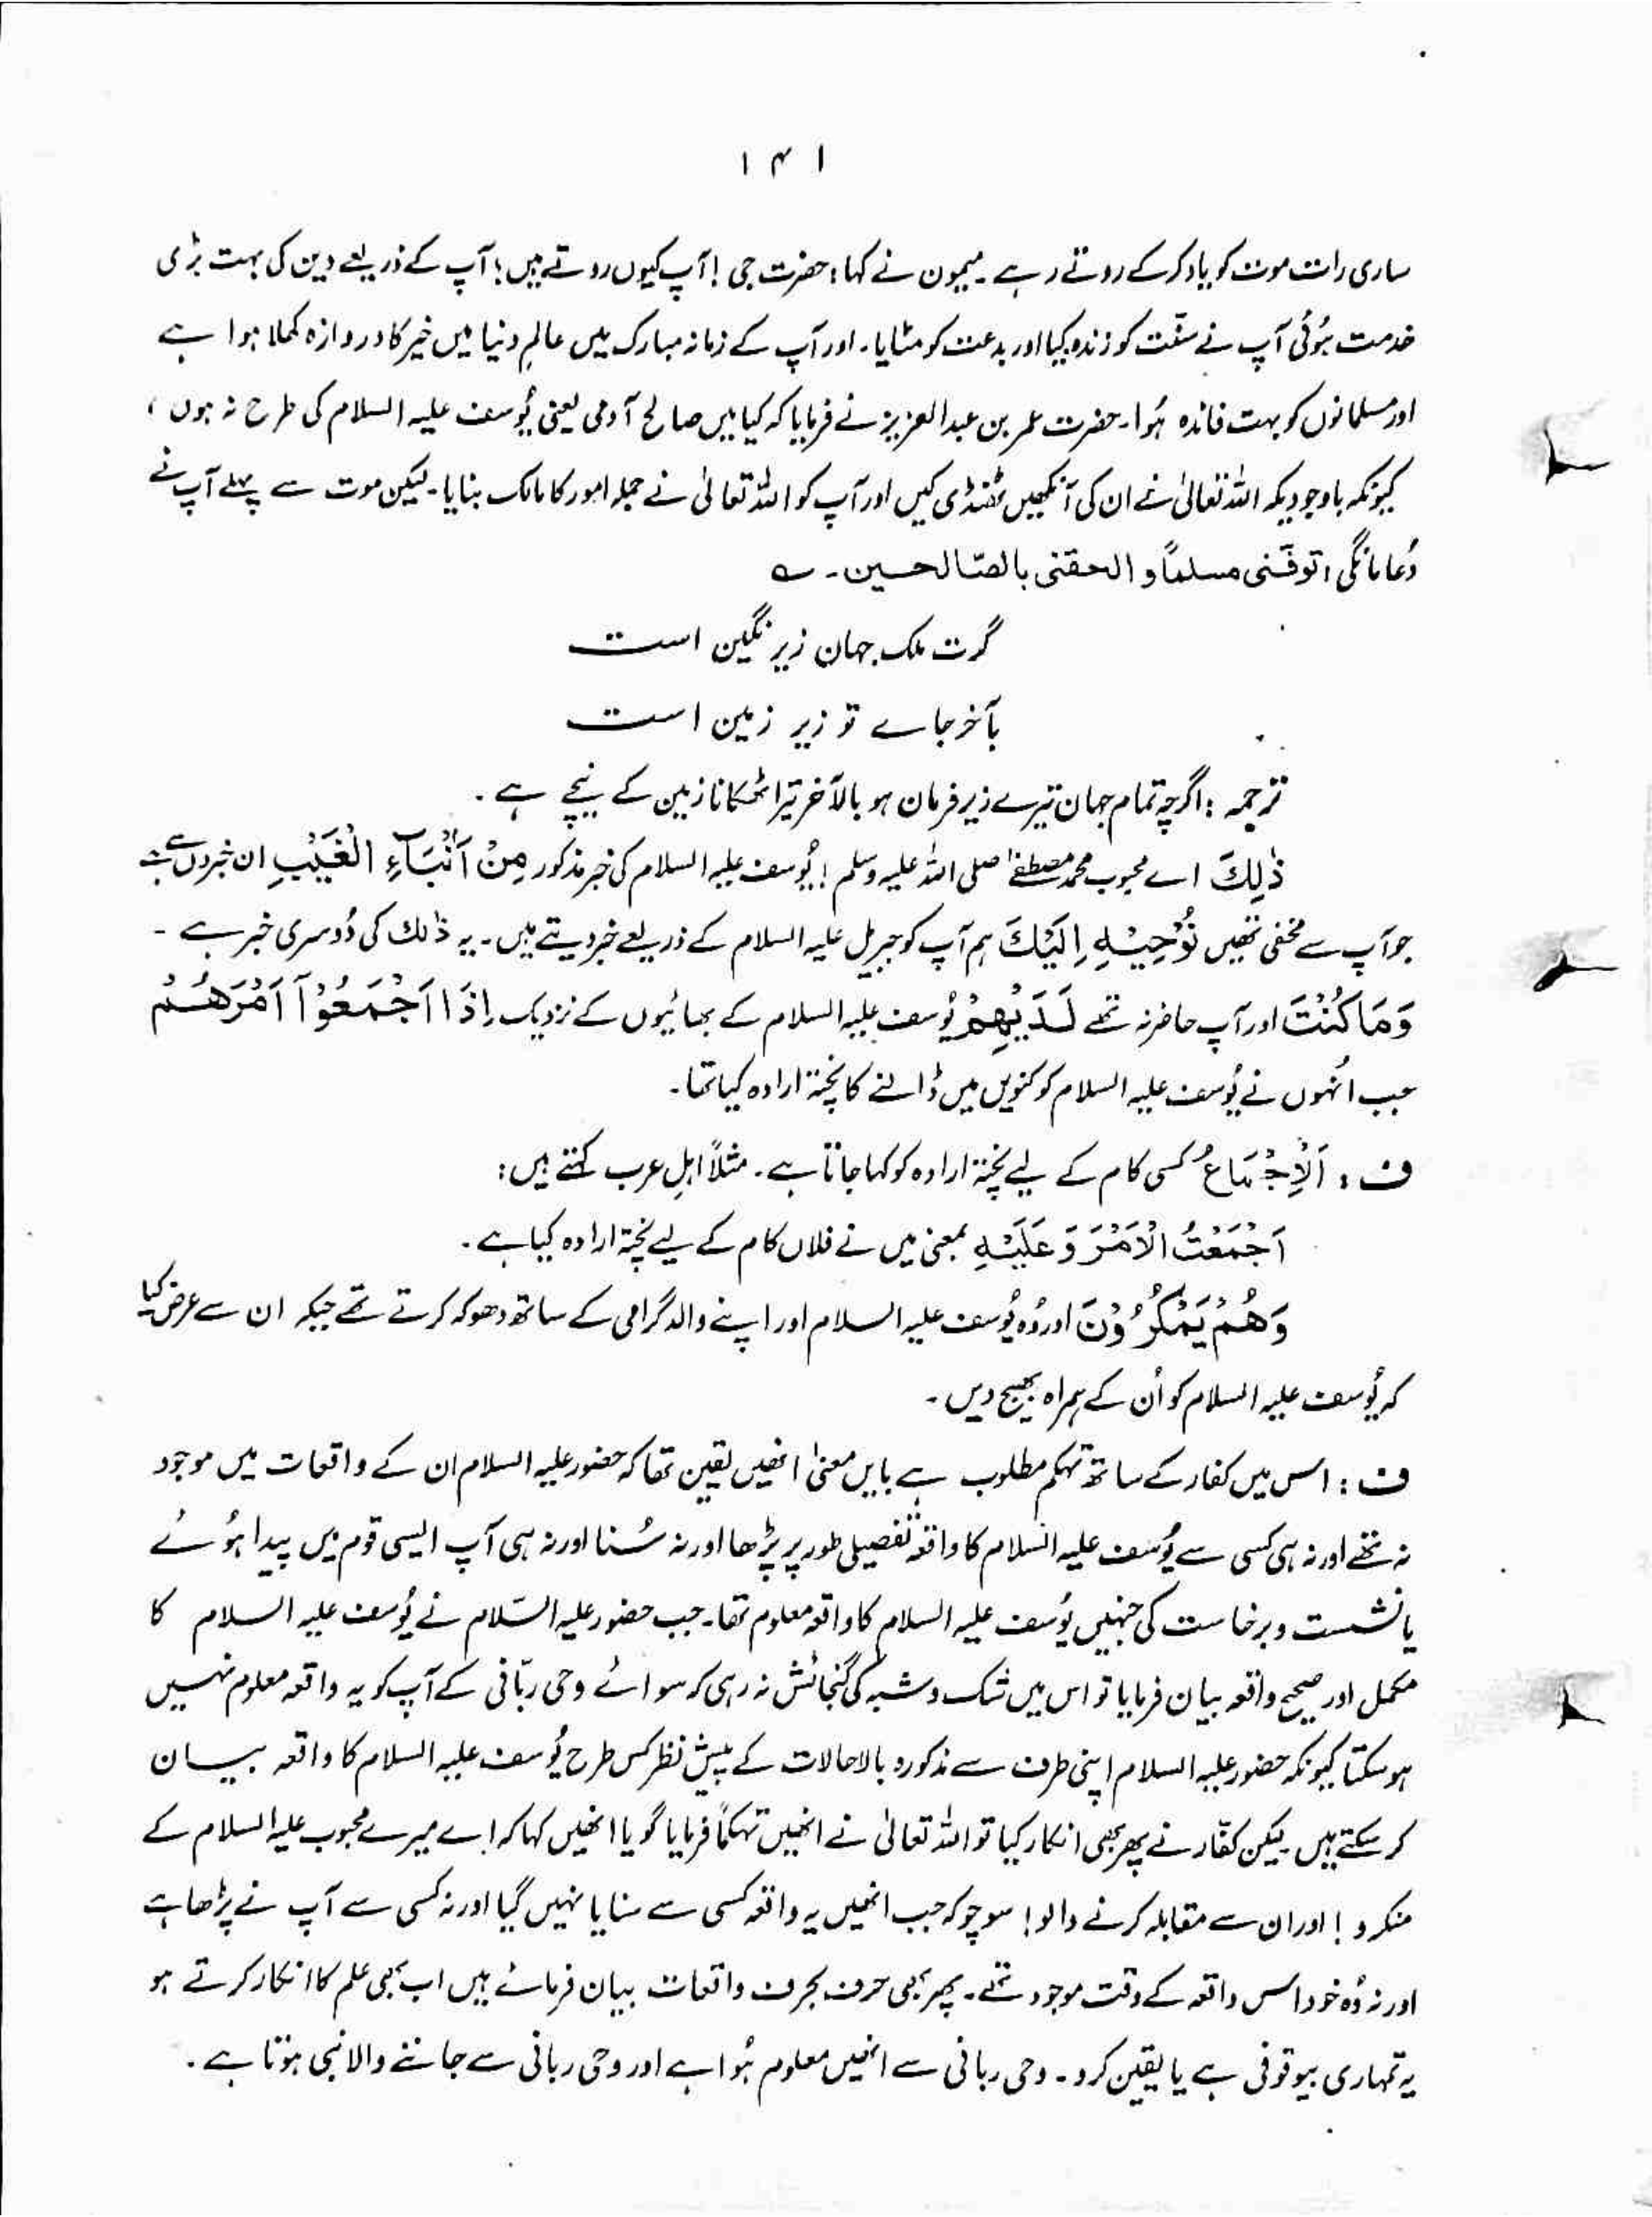 ۱۴۱
ساری رات موت کو یاد کرکے روتے رہے ۔ میمون نے کہا : حضرت جی ! آپ کیوں روتے ہیں ؛ آپ کے ذریعے دین کی بہت بڑی
خدمت ہُوئی آپ نے سنّت کو زندہ کیا اور بدعت کو مٹایا ۔ اور آپ کے زمانہ مبارک میں عالمِ دنیا میں خیر کا دروازہ کھلا ہوا ہے
اور مسلمانوں کو بہت فائدہ ہُوا ۔ حضرت عمر بن عبدالعزیز نے فرمایا کہ کیا میں صالح آدمی یعنی یُوسف علیہ السلام کی طرح نہ ہوں ،
کیونکہ باوجودیکہ اللہ تعالیٰ نے ان کی آنکھیں ٹھنڈی کیں اور آپ کو اللہ تعالیٰ نے جملہ امور کا مالک بنایا ۔ لیکن موت سے پہلے آپ نے
دُعا مانگی : توفّنی مسلماً و الحقنی بالصّالحسین ۔ ؎
گرت ملک جہان زیر نگین است
بآخر جاے تو زیر زمین است
ترجمہ : اگرچہ تمام جہان تیرے زیر فرمان ہو بالآخر تیرا ٹھکانا زمین کے نیچے ہے ۔
ذٰلِكَ اے محبوب محمد مصطفےٰ صلی اللہ علیہ وسلم ! یُوسف علیہ السلام کی خبر مذکور مِنْ اَنْۢبَآءِ الْغَيْبِ ان خبروں سے ہے
جو آپ سے مخفی تھیں نُوْحِيْهِ اِلَيْكَ ہم آپ کو جبریل علیہ السلام کے ذریعے خبر دیتے ہیں ۔ یہ ذٰلک کی دُوسری خبر ہے ۔
وَمَا كُنْتَ اور آپ حاضر نہ تھے لَدَيْهِمْ یُوسف علیہ السلام کے بھائیوں کے نزدیک اِذَا اَجْمَعُوْٓا اَمْرَهُمْ
جب اُنہوں نے یُوسف علیہ السلام کو کنویں میں ڈالنے کا پختہ ارادہ کیا تھا ۔
ف : اَلْاِجْمَاعُ کسی کام کے لیے پختہ ارادہ کو کہا جاتا ہے ۔ مثلاً اہلِ عرب کہتے ہیں :
اَجْمَعْتُ الْاَمْرَ وَعَلَيْهِ بمعنی میں نے فلاں کام کے لیے پختہ ارادہ کیا ہے ۔
وَهُمْ يَمْكُرُوْنَ اور وُہ یُوسف علیہ السلام اور اپنے والد گرامی کے ساتھ دھوکہ کرتے تھے جبکہ ان سے عرض کیا
کہ یُوسف علیہ السلام کو اُن کے ہمراہ بھیج دیں ۔
ف : اس میں کفار کے ساتھ تہکم مطلوب ہے بایں معنیٰ انھیں یقین تھا کہ حضور علیہ السلام ان کے واقعات میں موجود
نہ تھے اور نہ ہی کسی سے یُوسف علیہ السلام کا واقعہ تفصیلی طور پر پڑھا اور نہ سُنا اور نہ ہی آپ ایسی قوم میں پیدا ہُوئے
یا نشست و برخاست کی جنہیں یُوسف علیہ السلام کا واقعہ معلوم تھا ۔ جب حضور علیہ السّلام نے یُوسف علیہ السلام کا
مکمل اور صحیح واقعہ بیان فرمایا تو اس میں شک و شبہ کی گنجائش نہ رہی کہ سوائے وحی ربّانی کے آپ کو یہ واقعہ معلوم نہیں
ہوسکتا کیونکہ حضور علیہ السلام اپنی طرف سے مذکورہ بالا حالات کے پیش نظر کس طرح یُوسف علیہ السلام کا واقعہ بیان
کرسکتے ہیں لیکن کفّار نے پھر بھی انکار کیا تو اللہ تعالیٰ نے انھیں تہکماً فرمایا گویا انھیں کہا کہ اے میرے محبوب علیہ السلام کے
منکرو ! اور ان سے مقابلہ کرنے والو ! سوچو کہ جب انھیں یہ واقعہ کسی سے سنایا نہیں گیا اور نہ کسی سے آپ نے پڑھا ہے
اور نہ وُہ خود اس واقعہ کے وقت موجود تھے ۔ پھر بھی حرف بحرف واقعات بیان فرمائے ہیں اب بھی علم کا انکار کرتے ہو
یہ تمہاری بیوقوفی ہے یا یقین کرو ۔ وحی ربانی سے انھیں معلوم ہُوا ہے اور وحی ربانی سے جاننے والا نبی ہوتا ہے ۔